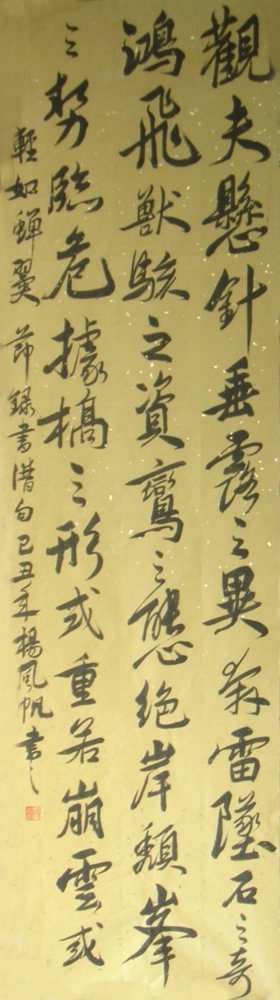 觀夫懸針垂露之異奔雷墜石之奇
鴻飛獸駭之資鸞之態絕岸頹峯
之勢臨危據槁之形或重若崩雲或
輕如蟬翼 節錄書譜句己丑年楊風帆書之